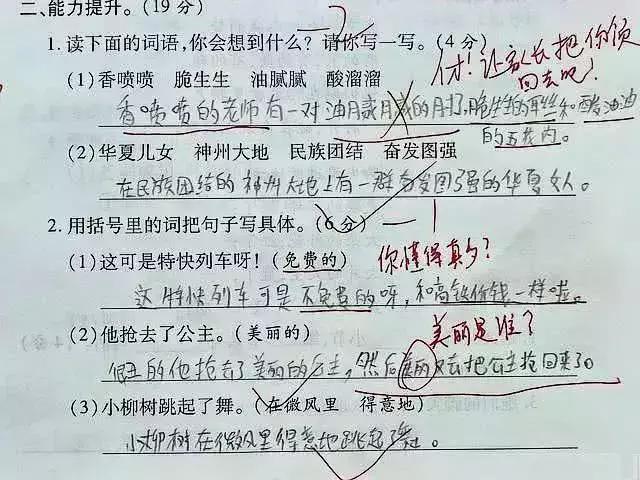 二、能力提升。(19分)
1.读下面的词语,你会想到什么?请你写一写。(4分)
(1)香喷喷 脆生生 油腻腻 酸溜溜
香喷喷的老师有一对油腻腻的肚子,脆生生的耳丝和酸油油
的五花肉。
(2)华夏儿女 神州大地 民族团结 奋发图强
在民族团结的神州大地上有一群奋发图强的华夏女人。
2.用括号里的词把句子写具体。(6分) —1
(1)这可是特快列车呀!(免费的) 你懂得真多?
这特快列车可是不免费的呀,和高铁价钱一样啦。
(2)他抢去了公主。(美丽的) 美丽是谁?
很丑的他抢去了美丽的公主,然后美丽又去把公主抢回来了。
(3)小柳树跳起了舞。(在微风里 得意地)
小柳树在微风里得意地跳起了舞。
让家长把你领
回去吧!